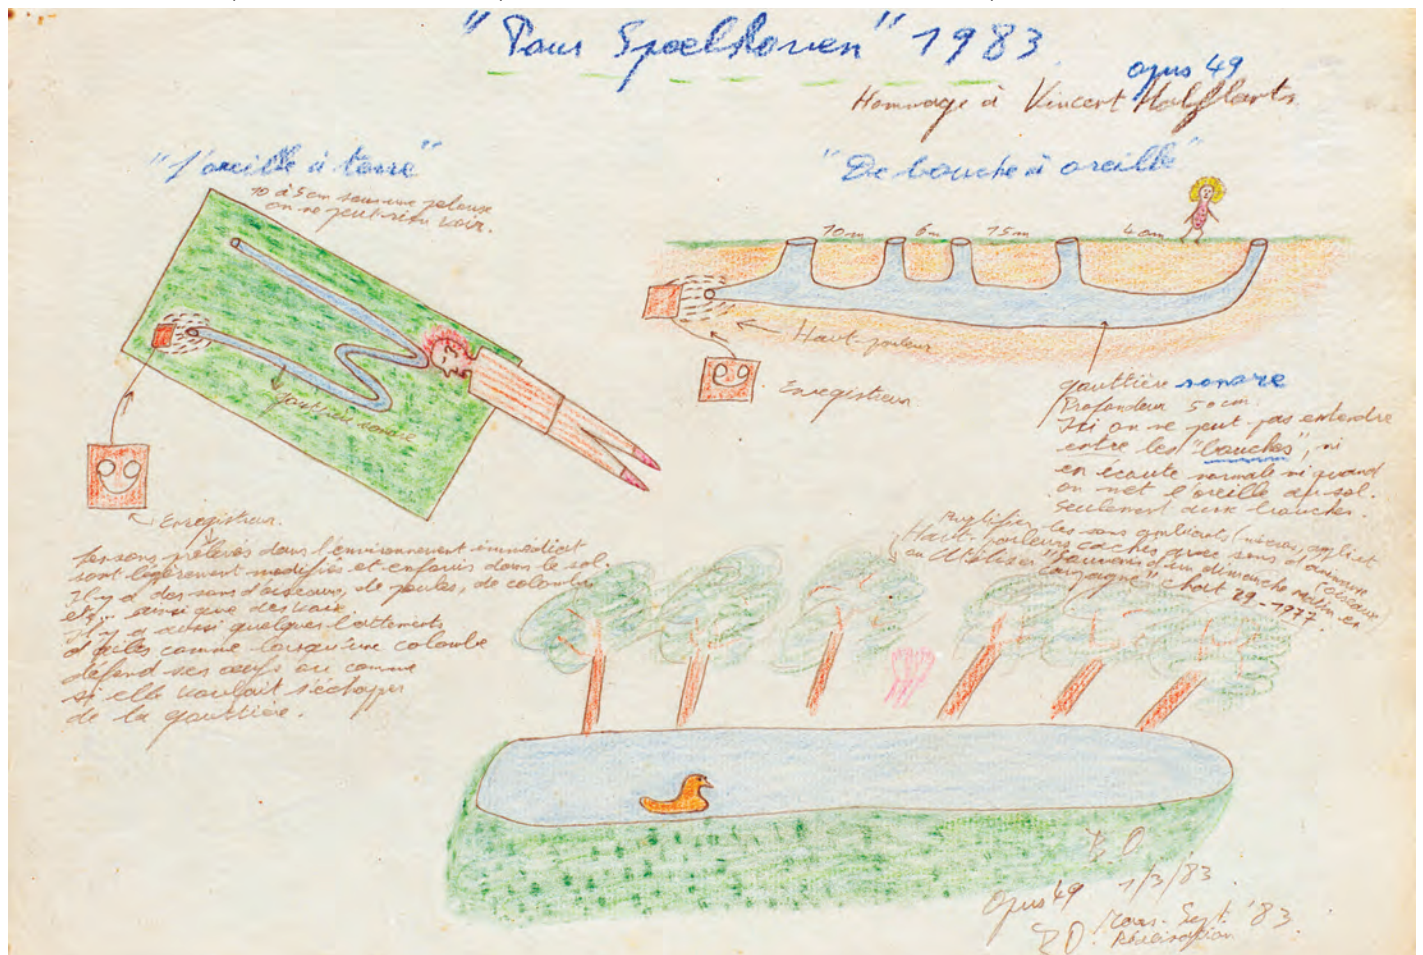 "Pour Spoelhoven" 1983
opus 49
Hommage à Vincent Halflants
"L'oreille à terre"
10 à 5 cm sous une pelouse
on ne peut rien voir.
gouttière sonore
Enregistreur.
Les sons prélevés dans l'environnement immédiat
sont légèrement modifiés et enfouis dans le sol.
Il y a des sons d'oiseaux, de poules, de colombes
etc... ainsi que des voix.
Il y a aussi quelques battements
d'ailes comme lorsqu'une colombe
défend ses œufs ou comme
si elle voulait s'échapper
de la gouttière.
"De bouche à oreille"
10m 6m 15m 4m
Haut-parleur
Enregistreur
gouttière sonore
Profondeur 50cm
Ici on ne peut pas entendre
entre les "bouches", ni
en écoute normale ni quand
on met l'oreille au sol.
Seulement aux bouches.
Amplifier les sons ambiants (micros, ampli et
Haut-parleurs cachés avec sons d'animaux
ou Utiliser "Souvenir d'un dimanche matin en
campagne" 29.-1977.
B.O
opus 49 1/3/83.
B.O. Mars. Sept. '83.
Réalisation